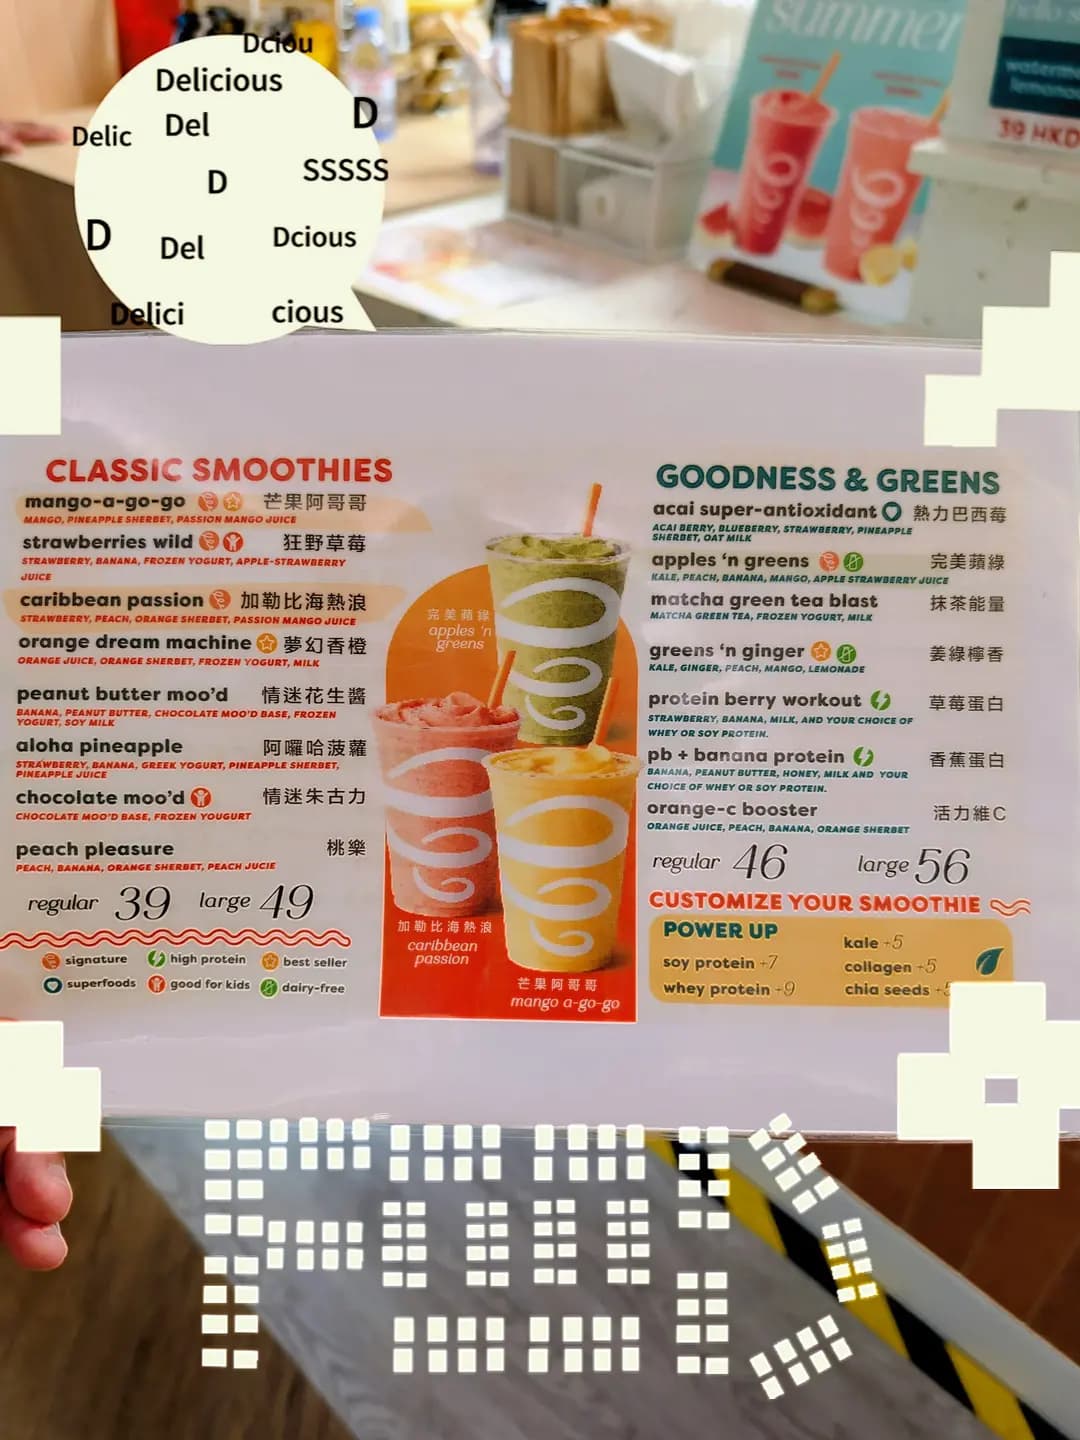 Dciou
Delicious
D
Delic
Del
SSSSS
D
D
Del
Dcious
Delici
cious
summer
hello s
39 HKD
CLASSIC SMOOTHIES
mango-a-go-go 芒果阿哥哥
MANGO, PINEAPPLE SHERBET, PASSION MANGO JUICE
strawberries wild 狂野草莓
STRAWBERRY, BANANA, FROZEN YOGURT, APPLE-STRAWBERRY
JUICE
caribbean passion 加勒比海熱浪
STRAWBERRY, PEACH, ORANGE SHERBET, PASSION MANGO JUICE
orange dream machine 夢幻香橙
ORANGE JUICE, ORANGE SHERBET, FROZEN YOGURT, MILK
peanut butter moo'd 情迷花生醬
BANANA, PEANUT BUTTER, CHOCOLATE MOO'D BASE, FROZEN
YOGURT, SOY MILK
aloha pineapple 阿囉哈菠蘿
STRAWBERRY, BANANA, GREEK YOGURT, PINEAPPLE SHERBET,
PINEAPPLE JUICE
chocolate moo'd 情迷朱古力
CHOCOLATE MOO'D BASE, FROZEN YOUGURT
peach pleasure 桃樂
PEACH, BANANA, ORANGE SHERBET, PEACH JUCIE
regular 39 large 49
signature high protein best seller
superfoods good for kids dairy-free
完美蘋綠
apples 'n
greens
加勒比海熱浪
caribbean
passion
芒果阿哥哥
mango a-go-go
GOODNESS & GREENS
acai super-antioxidant 熱力巴西莓
ACAI BERRY, BLUEBERRY, STRAWBERRY, PINEAPPLE
SHERBET, OAT MILK
apples 'n greens 完美蘋綠
KALE, PEACH, BANANA, MANGO, APPLE STRAWBERRY JUICE
matcha green tea blast 抹茶能量
MATCHA GREEN TEA, FROZEN YOGURT, MILK
greens 'n ginger 姜綠檸香
KALE, GINGER, PEACH, MANGO, LEMONADE
protein berry workout 草莓蛋白
STRAWBERRY, BANANA, MILK, AND YOUR CHOICE OF
WHEY OR SOY PROTEIN.
pb + banana protein 香蕉蛋白
BANANA, PEANUT BUTTER, HONEY, MILK AND YOUR
CHOICE OF WHEY OR SOY PROTEIN.
orange-c booster 活力維C
ORANGE JUICE, PEACH, BANANA, ORANGE SHERBET
regular 46 large 56
CUSTOMIZE YOUR SMOOTHIE
POWER UP
soy protein +7
whey protein +9
kale +5
collagen +5
chia seeds +5
FOOD